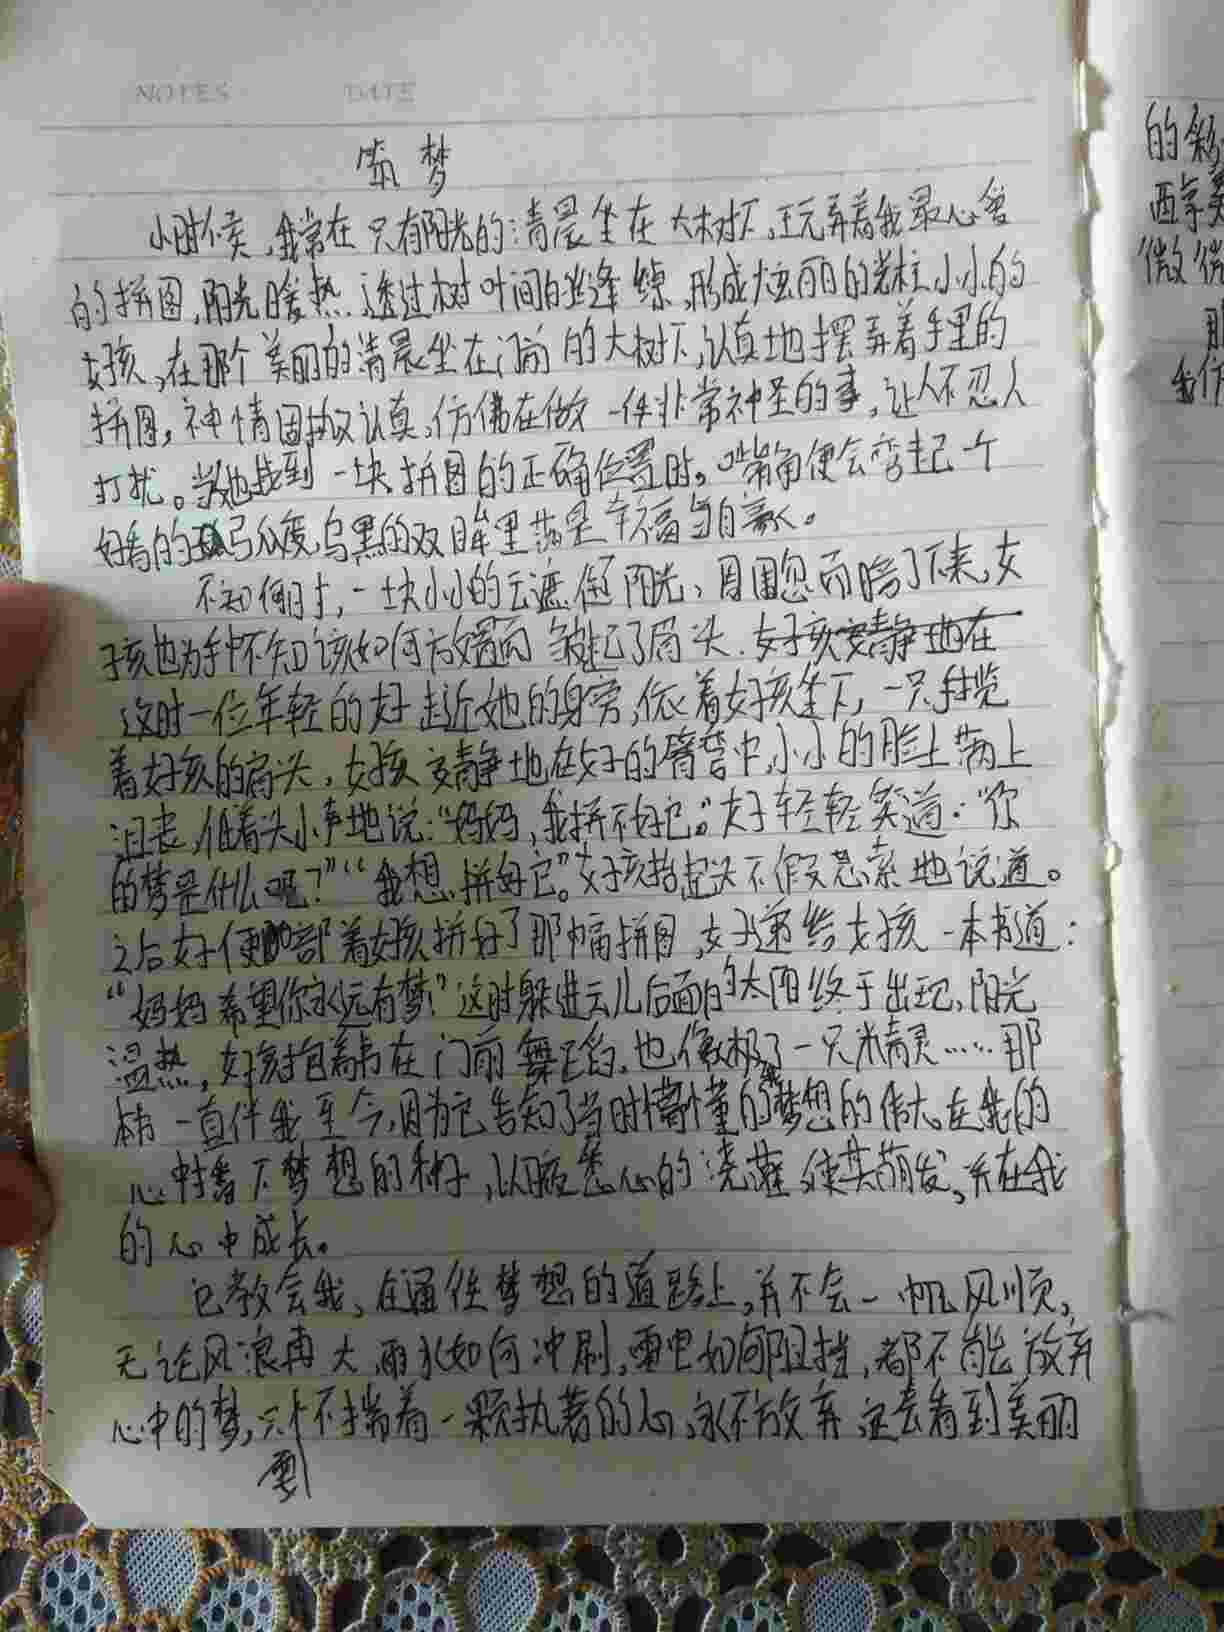 NOTES DATE
筑梦
小时候,我常在只有阳光的清晨坐在大树下,玩弄着我最心爱
的拼图,阳光暖热.透过树叶间的丝缝缭,形成炫丽的光柱,小小的
女孩,在那个美丽的清晨坐在门前的大树下,认真地摆弄着手里的
拼图,神情固执认真,仿佛在做一件非常神圣的事,让人不忍人
打扰。当她找到一块拼图的正确位置时。嘴角便会弯起一个
好看的弧度,乌黑的双眸里满是幸福与自豪。
不知何时,一块小小的云遮住阳光,周围忽而暗了下来,女
孩也为手中不知该如何放置而皱起了眉头.女孩安静地在
这时一位年轻的女子走近她的身旁,依着女孩坐下,一只手揽
着女孩的肩头,女孩安静地在女子的臂弯中,小小的脸上满上
沮丧,低着头小声地说:“妈妈,我拼不好它。”女子轻轻笑道:“你
的梦是什么呢?”“我想拼好它。”女孩抬起头不假思索地说道。
之后女子便陪着女孩拼好了那幅拼图,女子递给女孩一本书道:
“妈妈希望你永远有梦!”这时躲进云儿后面的太阳终于出现,阳光
温热,女孩抱着书在门前舞蹈,也像极了一只精灵……那
本书一直伴我至今,因为它告知了当时懵懂的我梦想的伟大.在我的
心中播下梦想的种子,以悉心的浇灌,使其萌发,并在我
的心中成长。
它教会我,在通往梦想的道路上,并不会一帆风顺,
无论风浪再大,雨水如何冲刷,雷电如何阻挡,都不能放弃
心中的梦,只要揣着一颗执著的心,永不放弃,定会看到美丽
的
西
微微
我仿